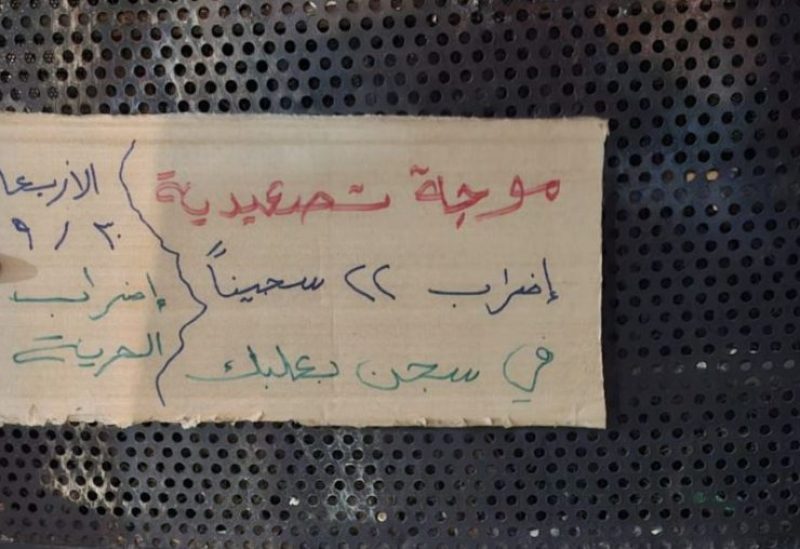 موجة تصعيدية
إضراب ٢٢ سجيناً
في سجن بعلبك
الاربعا
٩ / ٣٠
إضراب
الحرية